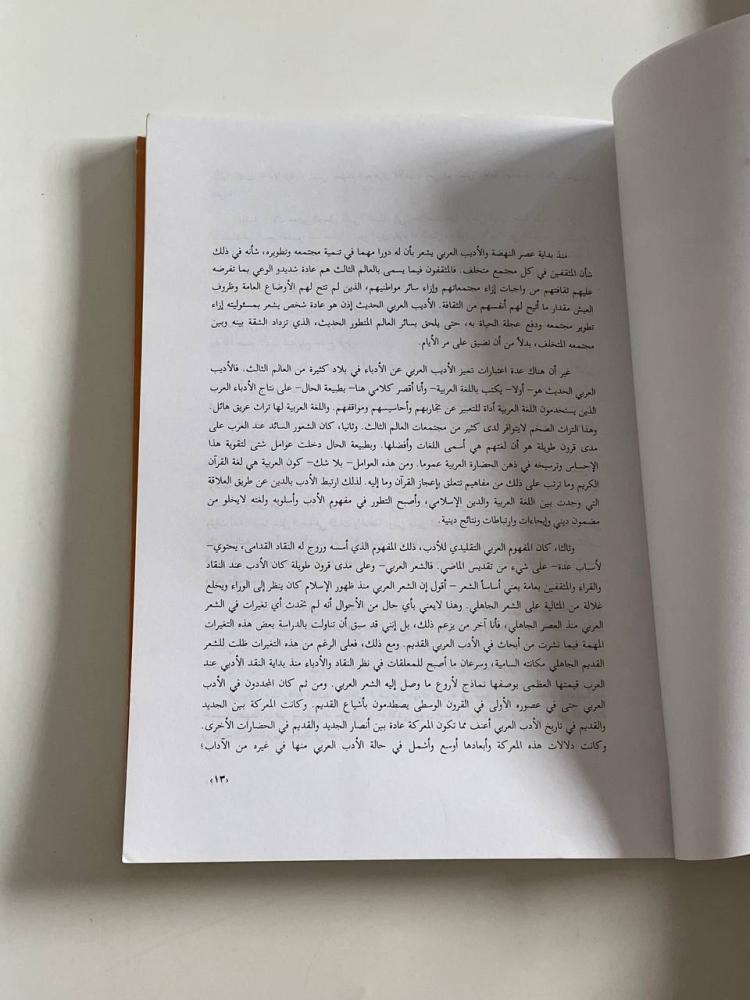 منذ بداية عصر النهضة والأديب العربي يشعر بأن له دورا مهما في تنمية مجتمعه وتطويره، شأنه في ذلك
شأن المثقفين في كل مجتمع متخلف. فالمثقفون فيما يسمى بالعالم الثالث هم عادة شديدو الوعي بما تفرضه
عليهم ثقافتهم من واجبات إزاء مجتمعاتهم وإزاء سائر مواطنيهم، الذين لم تتح لهم الأوضاع العامة وظروف
العيش مقدار ما أتيح لهم أنفسهم من الثقافة. الأديب العربي الحديث إذن هو عادة شخص يشعر بمسئوليته إزاء
تطوير مجتمعه ودفع عجلة الحياة به، حتى يلحق بسائر العالم المتطور الحديث، الذي تزداد الشقة بينه وبين
مجتمعه المتخلف، بدلاً من أن تضيق على مر الأيام.
غير أن هناك عدة اعتبارات تميز الأديب العربي عن الأدباء في بلاد كثيرة من العالم الثالث. فالأديب
العربي الحديث هو– أولا– يكتب باللغة العربية– وأنا أقصر كلامي هنا– بطبيعة الحال– على نتاج الأدباء العرب
الذين يستخدمون اللغة العربية أداة للتعبير عن تجاربهم وأحاسيسهم ومواقفهم. واللغة العربية لها تراث عريق هائل.
وهذا التراث الضخم لايتوافر لدى كثير من مجتمعات العالم الثالث. وثانيا، كان الشعور السائد عند العرب على
مدى قرون طويلة هو أن لغتهم هي أسمى اللغات وأفضلها. وبطبيعة الحال دخلت عوامل شتى لتقوية هذا
الإحساس وترسيخه في ذهن الحضارة العربية عموما. ومن هذه العوامل– بلا شك– كون العربية هي لغة القرآن
الكريم وما ترتب على ذلك من مفاهيم تتعلق بإعجاز القرآن وما إليه. لذلك ارتبط الأدب بالدين عن طريق العلاقة
التي وجدت بين اللغة العربية والدين الإسلامي، وأصبح التطور في مفهوم الأدب وأسلوبه ولغته لايخلو من
مضمون ديني وإيحاءات وارتباطات ونتائج دينية.
وثالثا، كان المفهوم العربي التقليدي للأدب، ذلك المفهوم الذي أسسه وروج له النقاد القدامى، يحتوي–
لأسباب عدة– على شيء من تقديس الماضي. فالشعر العربي– وعلى مدى قرون طويلة كان الأدب عند النقاد
والقراء والمثقفين بعامة يعني أساساً الشعر – أقول إن الشعر العربي منذ ظهور الإسلام كان ينظر إلى الوراء ويخلع
غلالة من المثالية على الشعر الجاهلي. وهذا لايعني بأي حال من الأحوال أنه لم تحدث أي تغيرات في الشعر
العربي منذ العصر الجاهلي، فأنا آخر من يزعم ذلك، بل إنني قد سبق أن تناولت بالدراسة بعض هذه التغيرات
المهمة فيما نشرت من أبحاث في الأدب العربي القديم. ومع ذلك، فعلى الرغم من هذه التغيرات ظلت للشعر
القديم الجاهلي مكانته السامية، وسرعان ما أصبح للمعلقات في نظر النقاد والأدباء منذ بداية النقد الأدبي عند
العرب قيمتها العظمى بوصفها نماذج لأروع ما وصل إليه الشعر العربي. ومن ثم كان المجددون في الأدب
العربي حتى في عصوره الأولى في القرون الوسطى يصطدمون بأشياع القديم. وكانت المعركة بين الجديد
والقديم في تاريخ الأدب العربي أعنف مما تكون المعركة عادة بين أنصار الجديد والقديم في الحضارات الأخرى.
وكانت دلالات هذه المعركة وأبعادها أوسع وأشمل في حالة الأدب العربي منها في غيره من الآداب؛
‹١٣›